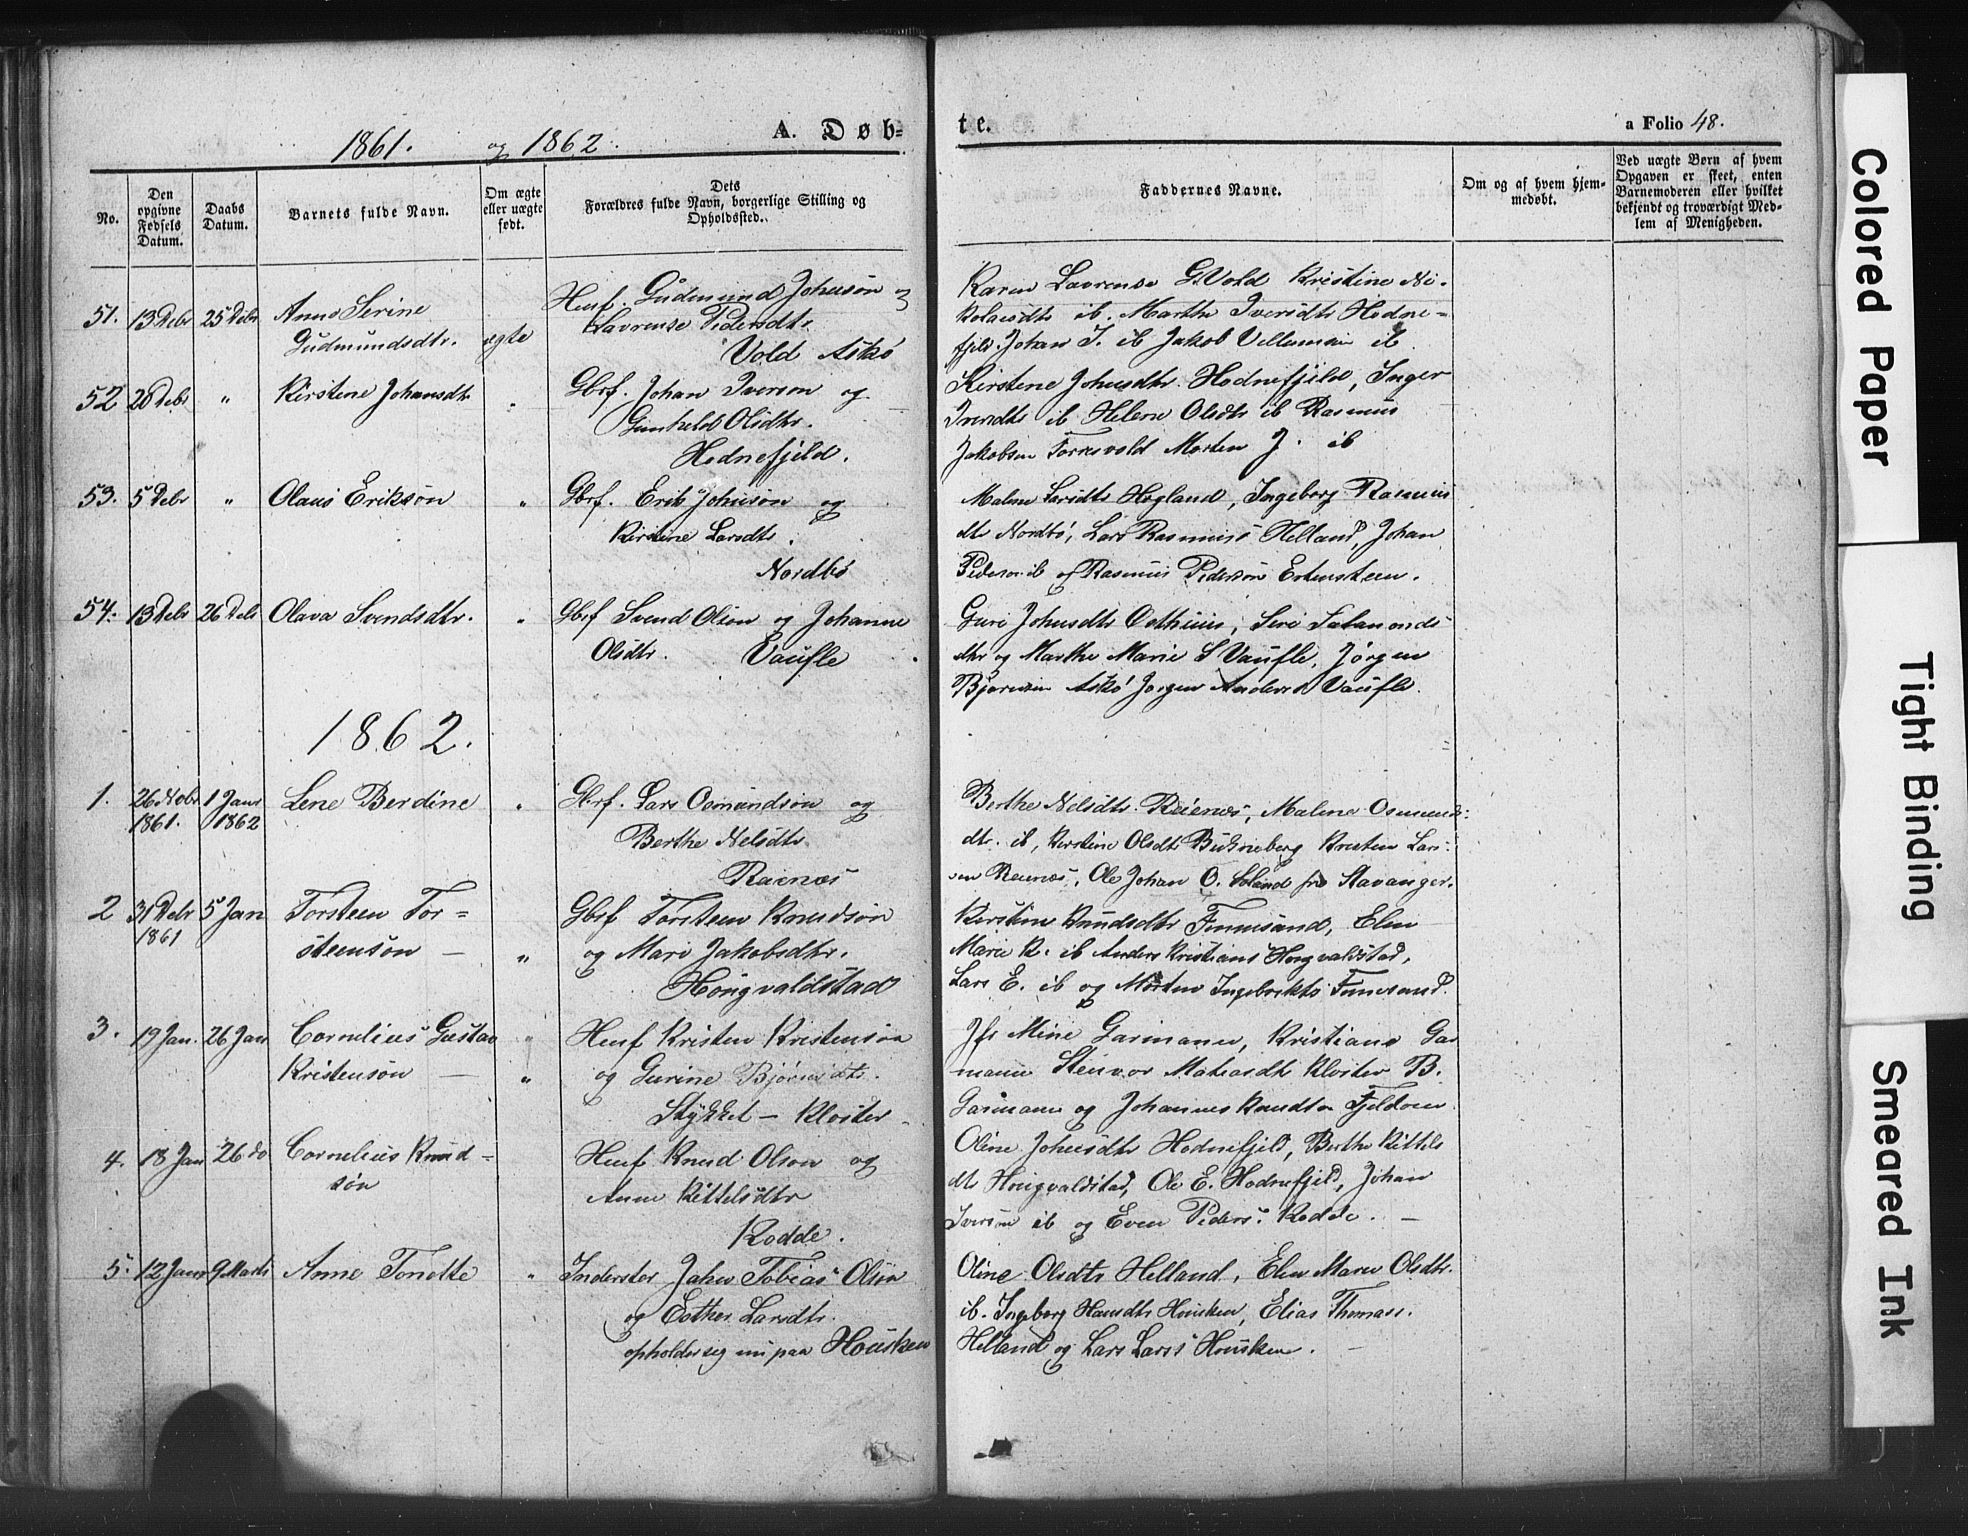 1861. og 1862.
A. Døb-
te.
a Folio 48.
No.
Den
opgivne
Fødsels
Datum.
Daabs
Datum.
Barnets fulde Navn.
Om ægte
eller uægte
født.
Dets
Forældres fulde Navn, borgerlige Stilling og
Opholdssted.
Faddernes Navne.
Om og af hvem hjem-
medøbt.
Ved uægte Børn af hvem
Opgaven er skeet, enten
Barnemoderen eller hvilket
bekjendt og troværdigt Med-
lem af Menigheden.
51. 13 Debr 25 Debr Anne Serine
Gudmundsdtr. ægte
Husf. Gudmund Johnsøn og
Lavrense Pedersdtr.
Vold Askø
Karen Lavrense G. Vold Kristine Ni-
kolaisdtr ib. Marthe Iversdtr Hodne-
fjeld. Johan I. ib Jakob Villumsen ib.
52 20 Debr " Kirstine Johansdtr "
Gbrf. Johan Iversøn og
Gunhild Olsdtr.
Hodnefjeld.
Kirstene Johnsdtr. Hodnefjeld, Inger
ib Helene Olsdtr ib Rasmus
Jakobsen Torresvold Morten J. ib
53. 5 Debr " Olaus Eriksøn "
Gbrf. Erik Johnsøn og
Kirstine Larsdtr.
Nordbø
Malene Larsdtr Hogland, Ingeborg Rasmus
dtr Nordbø, Lars Rasmuss Helland, Johan
Pederson ib og Rasmus Pedersøn
54. 13 Debr 26 Debr Olava Svendsdtr. "
Gbrf Svend Olson og Johanne
Olsdtr. Vaufle
Guri Johnsdtr Siri Salamonds
dtr og Marthe Marie S Vaufle, Jørgen
Askø Jørgen Anders Vaufle.
1862.
1. 26 Nobr 1 Janr Lene Berdine "
1861. 1862
Gbrf. Lars Osmundsøn og
Berthe Nelsdtr.
Reienæs
Berthe Nelsdtr. Reienæs, Malene Osmunds-
dtr. ib, Kirstine Olsdtr Kristen Lars-
sen Reienæs, Ole Johan O. fra Stavanger.
2 31 Debr 5 Jan Torsteen Tor=
1861 steensøn — "
Gbrf Torsteen Knudsøn
og Mari Jakobsdtr.
Hongvaldstad
Kirstine Knudsdtr Finnesand, Elen
Marie K. ib Anders Kristians Hongvaldstad,
Lars E. ib og Morten Ingebrikts Finnesand.
3. 19 Jan. 26 Jan Cornelius Gustav "
Kristensøn — "
Husf Kristen Kristensøn
og Gurine Bjørnsdtr.
Stykket — Kloster
Jfr Mine Garmann, Kristiane Gar
mann Stenvor Matiasdtr Kloster B.
Garmann og Johannes Knudsøn Fjeldøen
4. 18 Jan 26 do Cornelius Knud=
søn
Husf Knud Olson og
Anne Kittelsdtr
Rodde.
Oline Johnsdtr Hodnefjeld, Berthe Kittels
dtr Hongvaldstad, Ole E. Hodnefjeld, Johan
Iversøn ib og Even Peders. Rodde. —
5. 12 Janr 9 Marts Anne Tonette "
Inderster John Tobias Olsøn
og Esther Larsdtr.
opholder sig nu paa Housken
Oline Olsdtr Helland, Elen Maren Olsdtr.
ib. Ingeborg Hansdtr Housken, Elias Thomass.
Helland og Lars Larss Housken. —
Colored Paper
Tight Binding
Smeared Ink